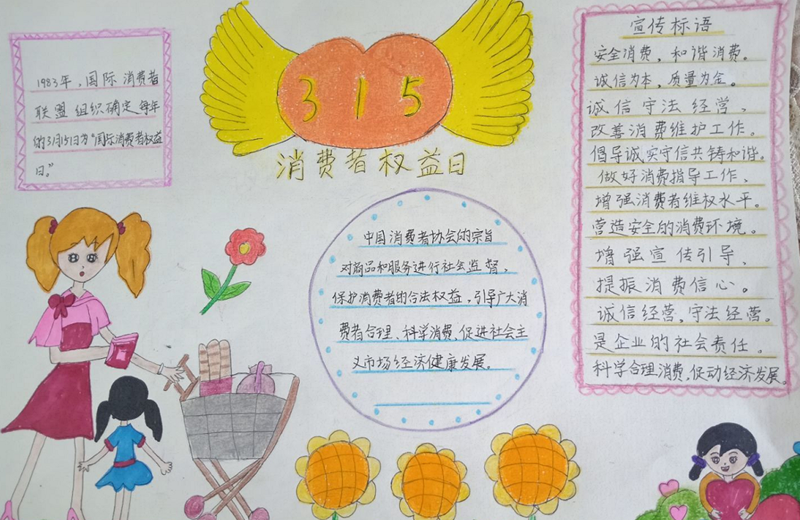 1983年，国际消费者
联盟组织确定每年
的3月15日为“国际消费者权益
日。”
315
消费者权益日
中国消费者协会的宗旨
对商品和服务进行社会监督，
保护消费者的合法权益，引导广大消
费者合理、科学消费、促进社会主
义市场经济健康发展。
宣传标语
安全消费，和谐消费。
诚信为本，质量为金。
诚信守法经营、
改善消费维护工作。
倡导诚实守信共铸和谐。
做好消费指导工作、
增强消费者维权水平。
营造安全的消费环境。
增强宣传引导、
提振消费信心。
诚信经营、守法经营。
是企业的社会责任。
科学合理消费，促动经济发展